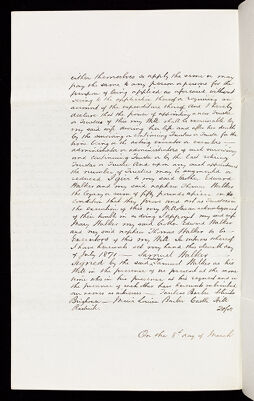 either themselves or apply the same or may
pay the same to any person or persons for the
purpose of being applied as aforesaid without
seeing to the application thereof or requiring an
account of the expenditure thereof And I hereby
declare that the power of appointing a new Trustee
or Trustees of this my Will shall be exercisable by
my said wife during her life and after her death
by the surviving or continuing Trustee or Trustees for the
time being or the acting executors or executor
administrators or administrator of such surviving
and continuing Trustee or by the last retiring
Trustee or Trustees And upon any such appointment
the number of Trustees may be augmented or
reduced I give to my said brother Edward
Walker and my said nephew Thomas Walker
the legacy or sum of fifty pounds apiece on
condition that they prove and act in
the execution of this my Will as an acknowledgment
of their trouble in so doing I appoint my said wife
Mary Walker my said brother Edward Walker
and my said nephew Thomas Walker to be
Executors of this my Will In witness whereof
I have hereunto set my hand this eleventh day
of July 1871 — Samuel Walker —
Signed by the said Samuel Walker as his
Will in the presence of us present at the same
time who in his presence at his request and in
the presence of each other have hereunto subscribed
our names as witnesses —
Brighouse — Maria Louisa Barber Castle Hill
Rastrick
On the 8th day of March